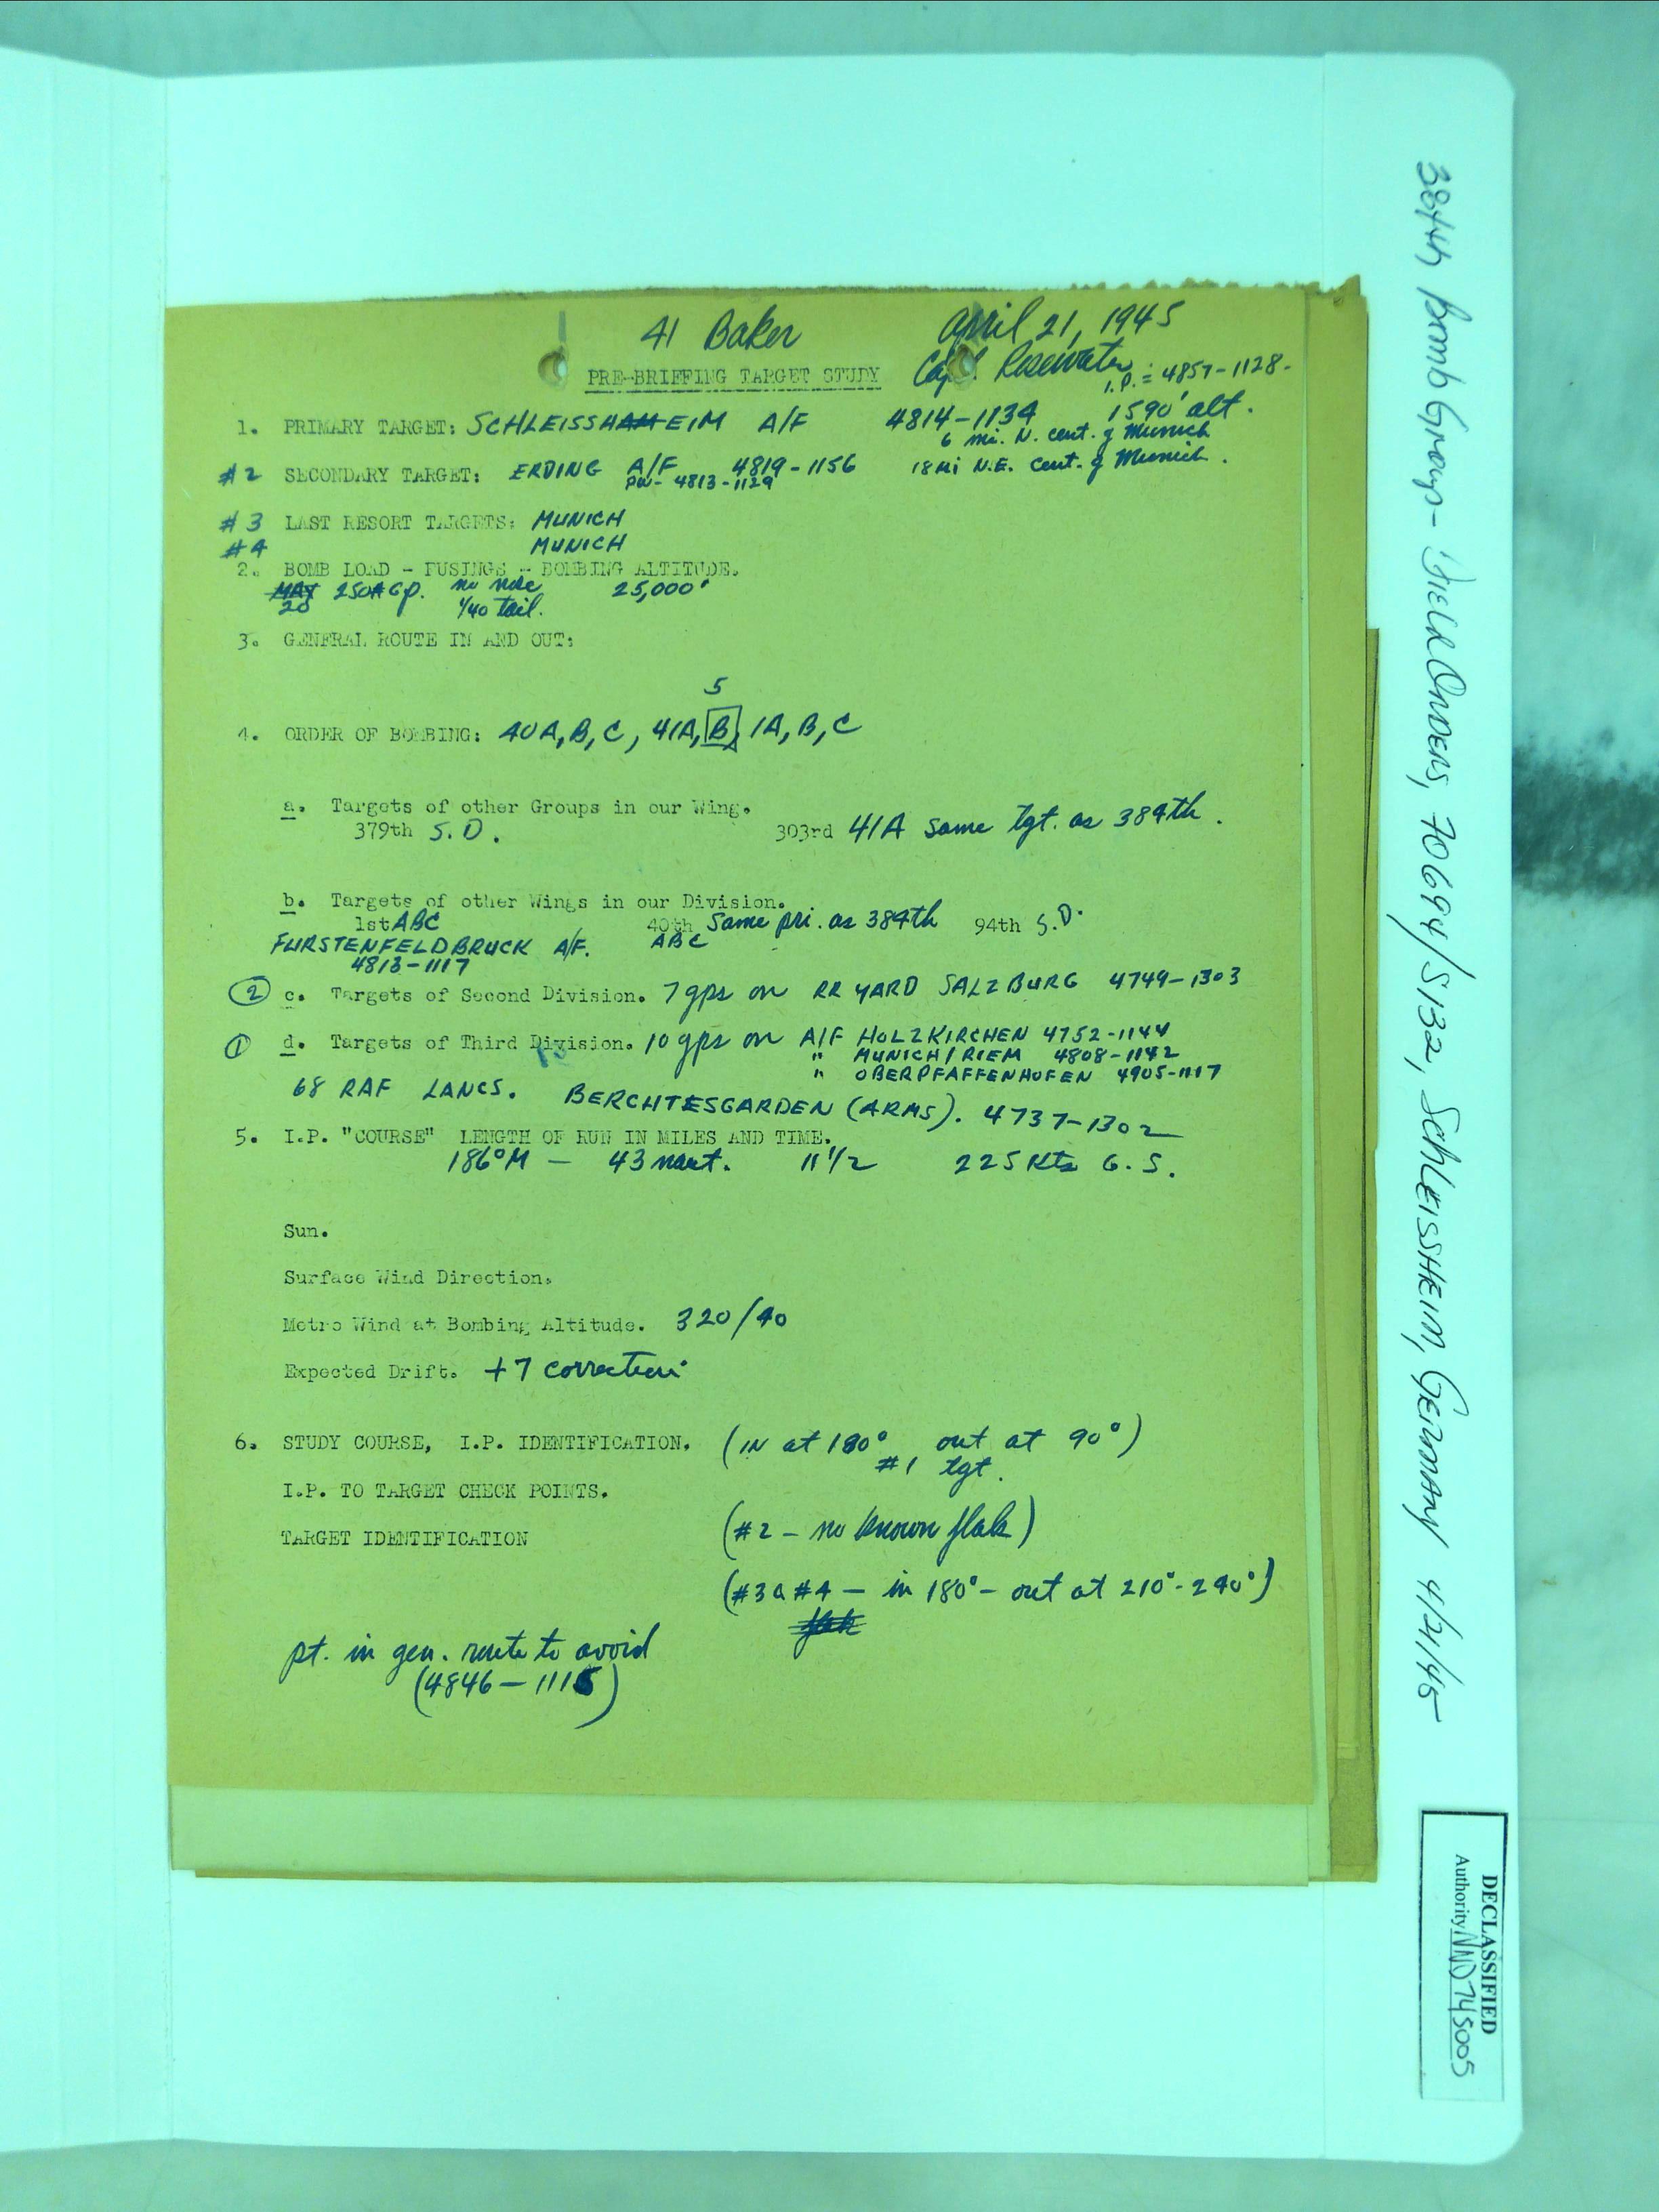 41 Baker April 21, 1945
PRE-BRIEFING TARGET STUDY Capt. Rosewater
I.P. = 4857-1128-
1. PRIMARY TARGET: SCHLEISSHAMEIM A/F 4814-1134 1590' alt.
6 mi. N. cent. of Munich
#2 SECONDARY TARGET: ERDING A/F 4819-1156 18 mi N.E. Cent. of Munich.
PW- 4813-1129
#3 LAST RESORT TARGETS: MUNICH
#4 MUNICH
2. BOMB LOAD - FUSINGS - BOMBING ALTITUDE.
MAX 250# Gp. no nose 25,000'
20 1/40 tail.
3. GENERAL ROUTE IN AND OUT:
5
4. ORDER OF BOMBING: 40A, B, C, 41A, B, 1A, B, C
a. Targets of other Groups in our Wing.
379th S.D. 303rd 41A same tgt. as 384th.
b. Targets of other Wings in our Division.
1st ABC 40th Same pri. as 384th 94th S.D.
FURSTENFELDBRUCK A/F. ABC
4813-1117
2 c. Targets of Second Division. 7 gps on RR YARD SALZBURG 4749-1303
1 d. Targets of Third Division. 10 gps on A/F HOLZKIRCHEN 4752-1144
" MUNICH/RIEM 4808-1142
" OBERPFAFFENHOFEN 4905-1117
68 RAF LANCS. BERCHTESGARDEN (ARMS). 4737-1302
5. I.P. "COURSE" LENGTH OF RUN IN MILES AND TIME.
186°M - 43 naut. 11 1/2 225 Kts G.S.
Sun.
Surface Wind Direction.
Metro Wind at Bombing Altitude. 320/40
Expected Drift. +7 correction
6. STUDY COURSE, I.P. IDENTIFICATION. (IN at 180° out at 90°)
#1 tgt.
I.P. TO TARGET CHECK POINTS.
TARGET IDENTIFICATION (#2 - no known flak)
(#3 & #4 - in 180° - out at 210°-240°)
flak
pt. in gen. route to avoid
(4846-1115)
384th Bomb Group - Field Orders, 70694/S132, Schleissheim, Germany 4/21/45
DECLASSIFIED
Authority NND745005